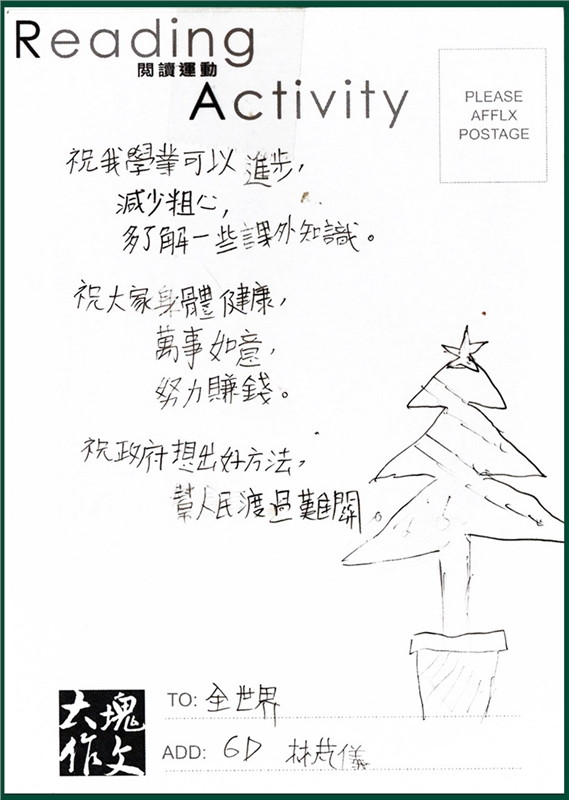 Reading
閱讀運動
Activity
PLEASE
AFFLX
POSTAGE
祝我學業可以進步,
減少粗心,
多了解一些課外知識。
祝大家身體健康,
萬事如意,
努力賺錢。
祝政府想出好方法,
幫人民渡過難關。
大塊
作文
TO: 全世界
ADD: 6D 林 儀